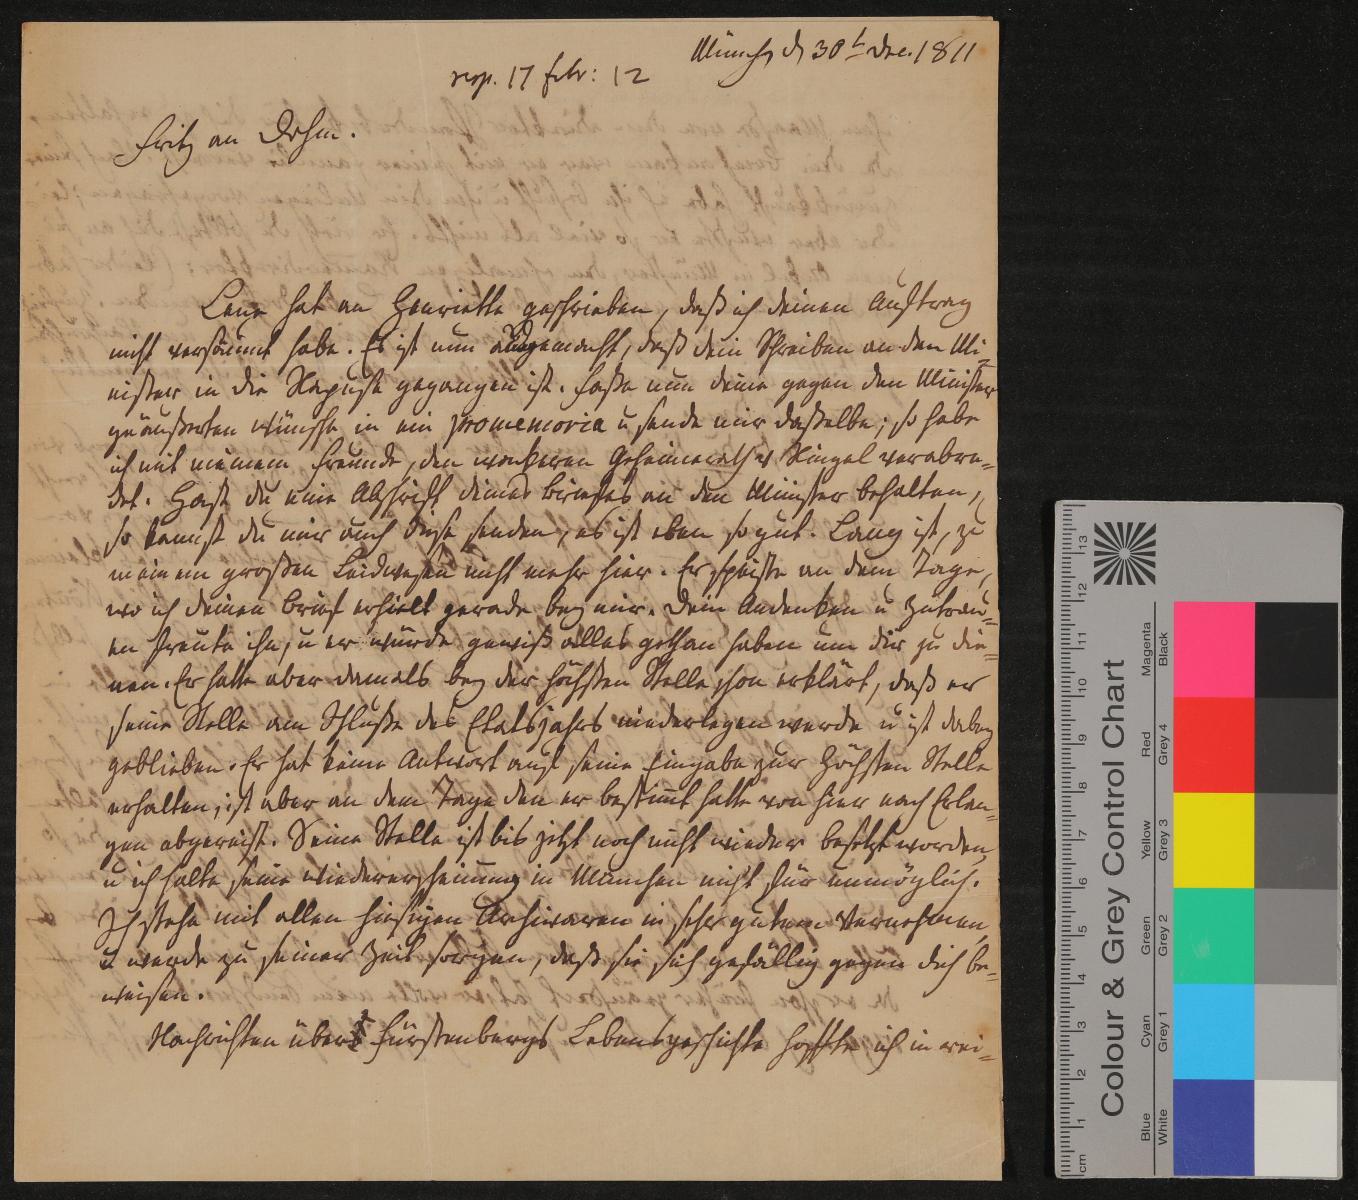 Münch d 30t Dec. 1811
resp. 17 febr: 12
Fritz an Dohm.
Lang hat an Henriette geschrieben, daß ich deinen Auftrag
nicht versäumt habe. Es ist nun ausgemacht, daß dein Schreiben an den Mi-
nister in die Kapuse gegangen ist. Faße nun deine gegen den Minister
geäußerten Wünsche in ein promemoria u sende mir daßelbe; so habe
ich mit meinem Freunde, dem wackeren Geheimerath v Ringel verabre-
det. Hast du eine Abschrift deines Briefes an den Minister behalten,
so kannst du mir auch diese senden, es ist eben so gut. Lang ist, zu
meinem großen Leidwesen nicht mehr hier. Er speiste an dem Tage,
wo ich deinen Brief erhielt gerade bey mir. Dein Andenken u Zutrau-
en freute ihn, u er würde gewiß alles gethan haben um dir zu die-
nen. Er hatte aber damals bey der höchsten Stelle schon erklärt, daß er
seine Stelle am Schluße des Etatsjahrs niederlegen werde u ist dabey
geblieben. Er hat keine Antwort auf seine Eingabe zur Höchsten Stelle
erhalten; ist aber an dem Tage den er bestimt hatte von hier nach Erlan-
gen abgereist. Seine Stelle ist bis jetzt noch nicht wieder besetzt worden,
u ich halte seine Wiedererscheinung in München nicht für unmöglich.
Ich stehe mit allen hiesigen Archivaren in sehr gutem Vernehmen,
u werde zu seiner Zeit sorgen, daß sie sich gefällig gegen dich be-
weisen.
Nachrichten über Fürstenbergs Lebensgeschichte hoffte ich in rei-